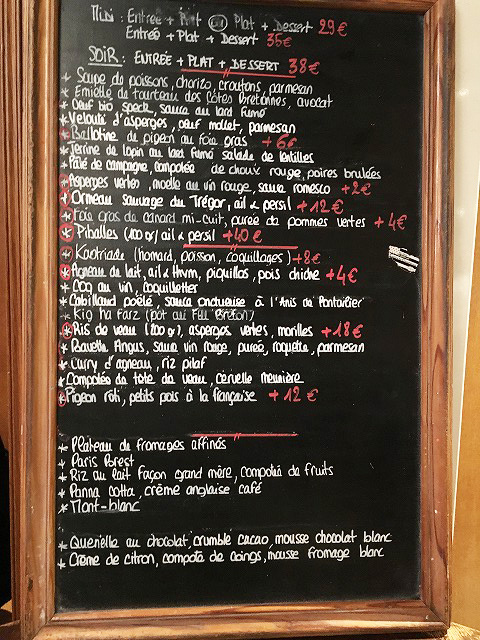 Midi : Entrée + Plat ou Plat + Dessert 29€
Entrée + Plat + Dessert 35€
SOIR : ENTRÉE + PLAT + DESSERT 38€
* Soupe de poissons, chorizo, croutons, parmesan
* Emietté de tourteau des Côtes Bretonnes, avocat
* Oeuf bio, speck, sauce au lard fumé
* Velouté d'asperges, oeuf mollet, parmesan
* Ballotine de pigeon au foie gras +6€
* Terrine de lapin au lard fumé salade de lentilles
* Pâté de campagne, compotée de choux rouge, poires brulées
* Asperges vertes, moelle au vin rouge, sauce romesco +2€
* Ormeau sauvage du Trégor, ail & persil +12€
* Foie gras de canard mi-cuit, purée de pommes vertes +4€
* Piballes (100 gr) ail & persil +40€
* Kaotriade (homard, poisson, coquillages) +8€
* Agneau de lait, ail & thym, piquillos, pois chiche +4€
* Coq au vin, coquillettes
* Cabillaud poêlé, sauce onctueuse à l'Anis de Pontarlier
* Kig ha Farz (pot au Feu Breton)
* Ris de veau (200 gr), asperges vertes, morilles +18€
* Bavette Angus, sauce vin rouge, purée, roquette, parmesan
* Curry d'agneau, riz pilaf
* Compotée de tête de veau, cervelle meunière
* Pigeon rôti, petits pois à la française +12€
* Plateau de fromages affinés
* Paris Brest
* Riz au lait façon grand mère, compotée de fruits
* Panna cotta, crème anglaise café
* Mont-blanc
* Quenelle au chocolat, crumble cacao, mousse chocolat blanc
* Crème de citron, compote de coings, mousse fromage blanc